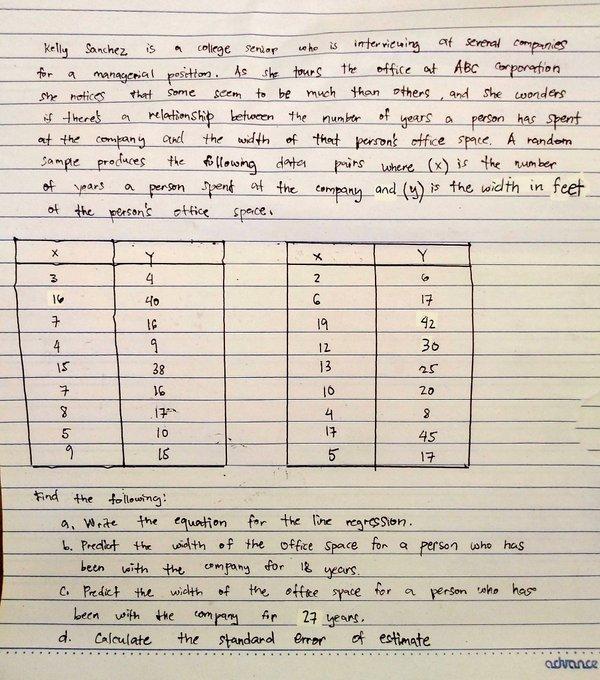 Kelly Sanchez is a college senior who is interviewing at several companies
for a managerial position. As she tours the office at ABC Corporation
she notices that some seem to be much than others, and she wonders
if there's a relationship between the number of years a person has spent
at the company and the width of that person's office space. A random
sample produces the following data pairs where (x) is the number
of years a person spent at the company and (y) is the width in feet
of the person's office space.
X Y X Y
3 4 2 6
16 40 6 17
7 16 19 42
4 9 12 30
15 38 13 25
7 16 10 20
8 17 4 8
5 10 17 45
9 15 5 17
Find the following:
a. Write the equation for the line regression.
b. Predict the width of the office space for a person who has
been with the company for 18 years.
c. Predict the width of the office space for a person who has
been with the company for 27 years.
d. Calculate the standard error of estimate
advance